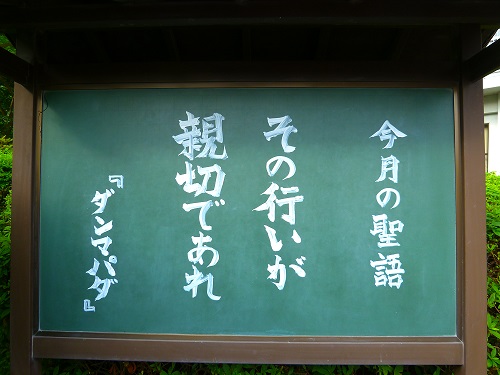 今月の聖語
その行いが
親切であれ
『ダンマパダ』